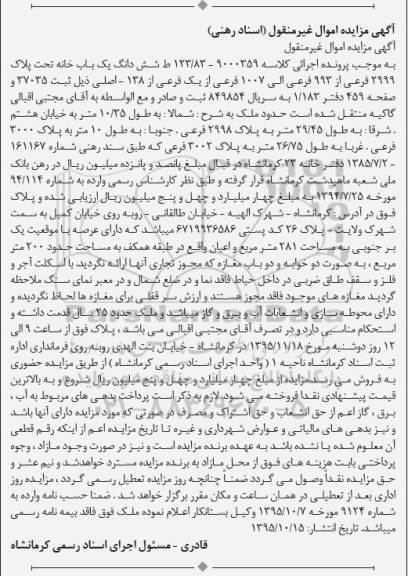 آگهی مزایده اموال غیرمنقول (اسناد رهنی)
آگهی مزایده اموال غیرمنقول
به موجب پرونده اجرائی کلاسه ۹۰۰۰۳۵۹ - ۱۲۳/۸۳ ط شش دانگ یک باب خانه تحت پلاک
۲۹۹۹ فرعی از ۹۹۳ فرعی الی ۱۰۰۷ فرعی از یک فرعی از ۱۳۸ - اصلی ذیل ثبت ۳۷۰۳۵ و
صفحه ۴۵۹ دفتر ۱/۱۸۳ به سریال ۸۴۹۸۵۴ ثبت و صادر و مع الواسطه به آقای مجتبی اقبالی
گاکیه منتقل شده است حدود ملک به شرح : شمالا : به طول ۱۰/۳۵ متر به خیابان هشتم
. شرقا : به طول ۲۹/۴۵ متر به پلاک ۲۹۹۸ فرعی . جنوبا : به طول ۱۰ متر به پلاک ۳۰۰۰
فرعی . غربا به طول ۲۶/۷۵ متر به پلاک ۳۰۰۲ فرعی که طبق سند رهنی شماره ۱۶۱۱۶۷
- ۱۳۸۵/۷/۲ دفتر خانه ۲۳ کرمانشاه در قبال مبلغ پانصد و پانزده میلیون ریال در رهن بانک
ملی شعبه ماهیدشت کرمانشاه قرار گرفته و طبق نظر کارشناس رسمی وارده به شماره ۹۴/۱۱۴
مورخه ۱۳۹۴/۷/۲۵ به مبلغ چهار میلیارد و چهل و پنج میلیون ریال ارزیابی شده و پلاک
فوق در آدرس : کرمانشاه - شهرک الهیه - خیابان طالقانی - روبه روی خیابان کمیل به سمت
شهرک ولایت - پلاک ۲۶ کد پستی ۶۷۱۹۹۳۶۵۸۶ میباشد که دارای عرصه با موقعیت یک
بر جنوبی به مساحت ۲۸۱ متر مربع و اعیان واقع در طبقه همکف به مساحت حدود ۲۰۰ متر
مربع ، به صورت دو خوابه و دو باب مغازه که مجوز تجاری آنها ارائه نگردید با اسکلت آجر و
فلز و سقف طاق ضربی در داخل حیاط فاقد نما و در ضلع شمال و در معبر نمای سنگ ملاحظه
گردید مغازه های موجود فاقد مجوز هستند و ارزش سر قفلی برای مغازه ها لحاظ نگردیده و
دارای محوطه سازی و انشعابات آب و برق و گاز میباشد و ملک حدود ۲۵ سال قدمت داشته و
استحکام مناسبی دارد و در تصرف آقای مجتبی اقبالی می باشد ، پلاک فوق از ساعت ۹ الی
۱۲ روز دوشنبه مورخ ۱۳۹۵/۱۱/۱۸ در کرمانشاه - خیابان بنت الهدی روبه روی فرمانداری اداره
ثبت اسناد کرمانشاه ناحیه ۱ ( واحد اجرای اسناد رسمی کرمانشاه ) از طریق مزایده حضوری
به فروش می رسد مزایده از مبلغ چهار میلیارد و چهل و پنج میلیون ریال شروع و به بالاترین
قیمت پیشنهادی نقدا فروخته می شود. لازم به ذکر است پرداخت بدهی های مربوط به آب ،
برق ، گاز اعم از حق انشعاب و حق اشتراک و مصرف در صورتی که مورد مزایده دارای آنها باشد
و نیز بدهی های مالیاتی و عوارض شهرداری و غیره تا تاریخ مزایده اعم از اینکه رقم قطعی
آن معلوم شده یا نشده باشد به عهده برنده مزایده است و نیز در صورت وجود مازاد ، وجوه
پرداختی بابت هزینه های فوق از محل مازاد به برنده مزایده مسترد خواهدشد و نیم عشر و
حق مزایده نقداً وصول می گردد ضمناً چنانچه روز مزایده تعطیل رسمی گردد ، مزایده روز
اداری بعد از تعطیلی در همان ساعت و مکان مقرر برگزار خواهد شد . ضمنا حسب نامه وارده به
شماره ۹۱۲۴ مورخه ۱۳۹۵/۱۰/۷ وکیل بستانکار اعلام نموده ملک فوق فاقد بیمه نامه رسمی
میباشد. تاریخ انتشار: ۱۳۹۵/۱۰/۱۵
قادری - مسئول اجرای اسناد رسمی کرمانشاه